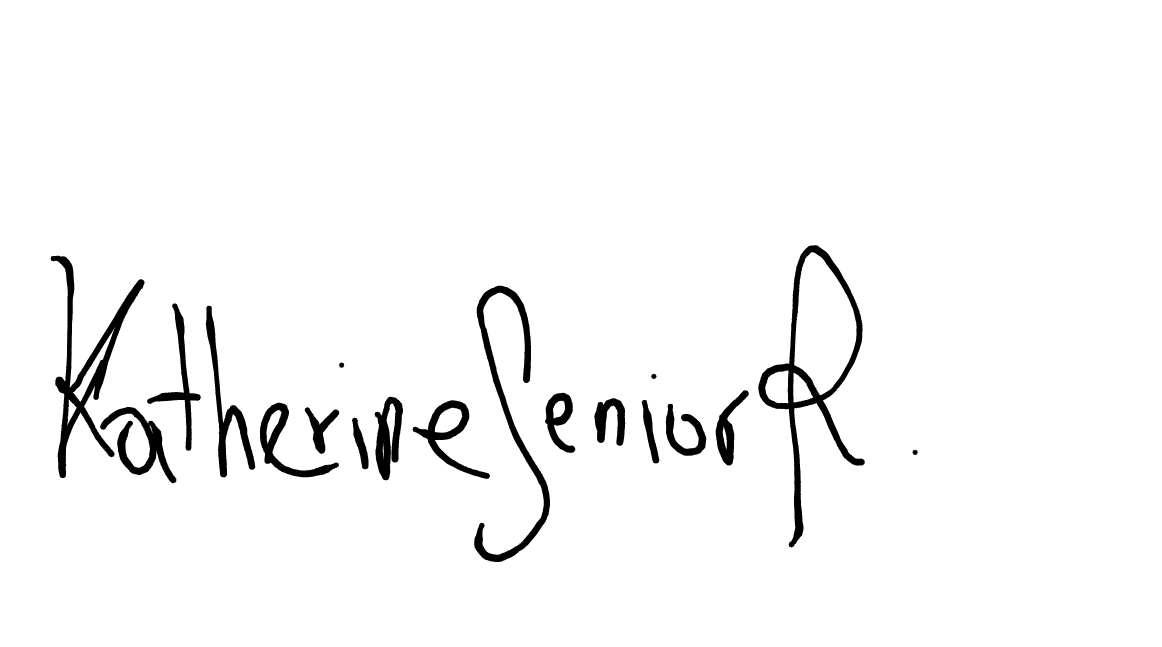 Katherine Senior R.